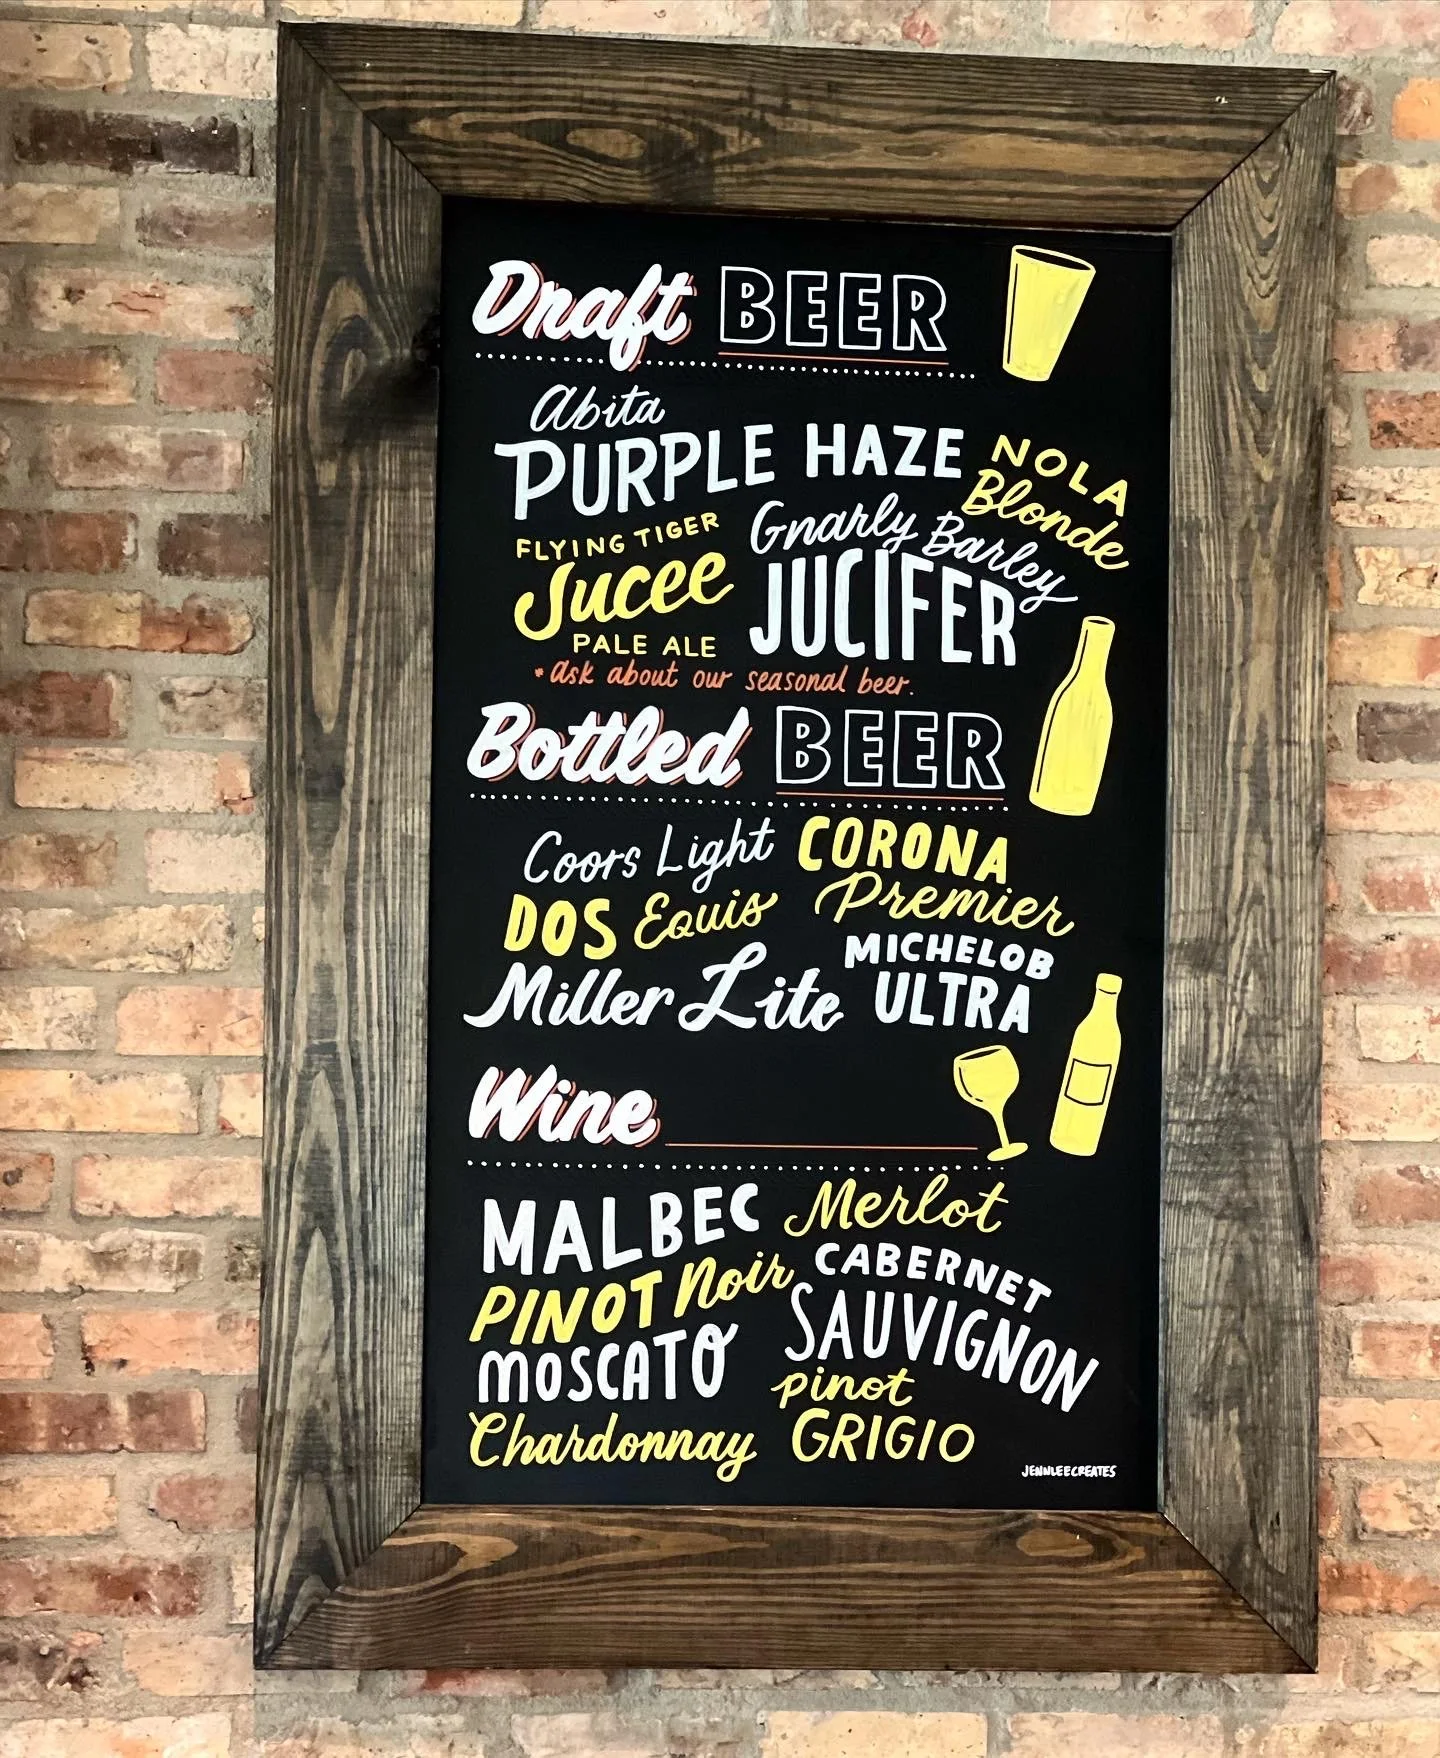 Draft BEER
Abita
PURPLE HAZE
NOLA
Blonde
FLYING TIGER
Jucee
PALE ALE
Gnarly Barley
JUCIFER
*ask about our seasonal beer.
Bottled BEER
Coors Light
CORONA
Premier
DOS Equis
Miller Lite
MICHELOB
ULTRA
Wine
MALBEC
Merlot
PINOT Noir
CABERNET
SAUVIGNON
MOSCATO
pinot
GRIGIO
Chardonnay
JENNLEECREATES